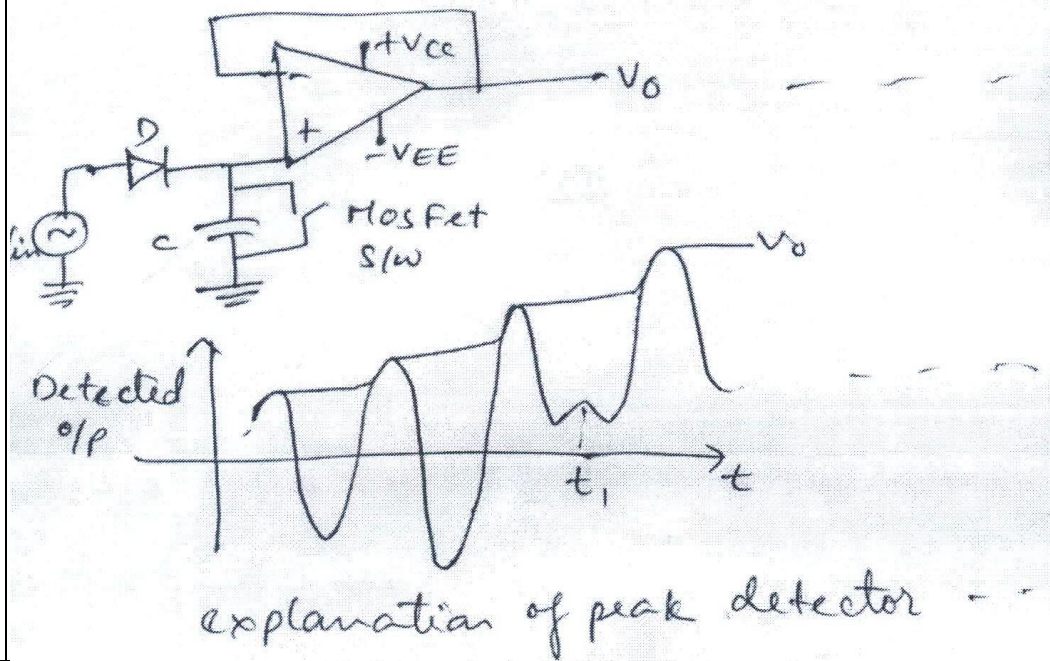 +Vcc
-
Vo
+
-VEE
D
in
C
MosFet
S/w
Vo
Detected
o/p
t1
t
explanation of peak detector - -